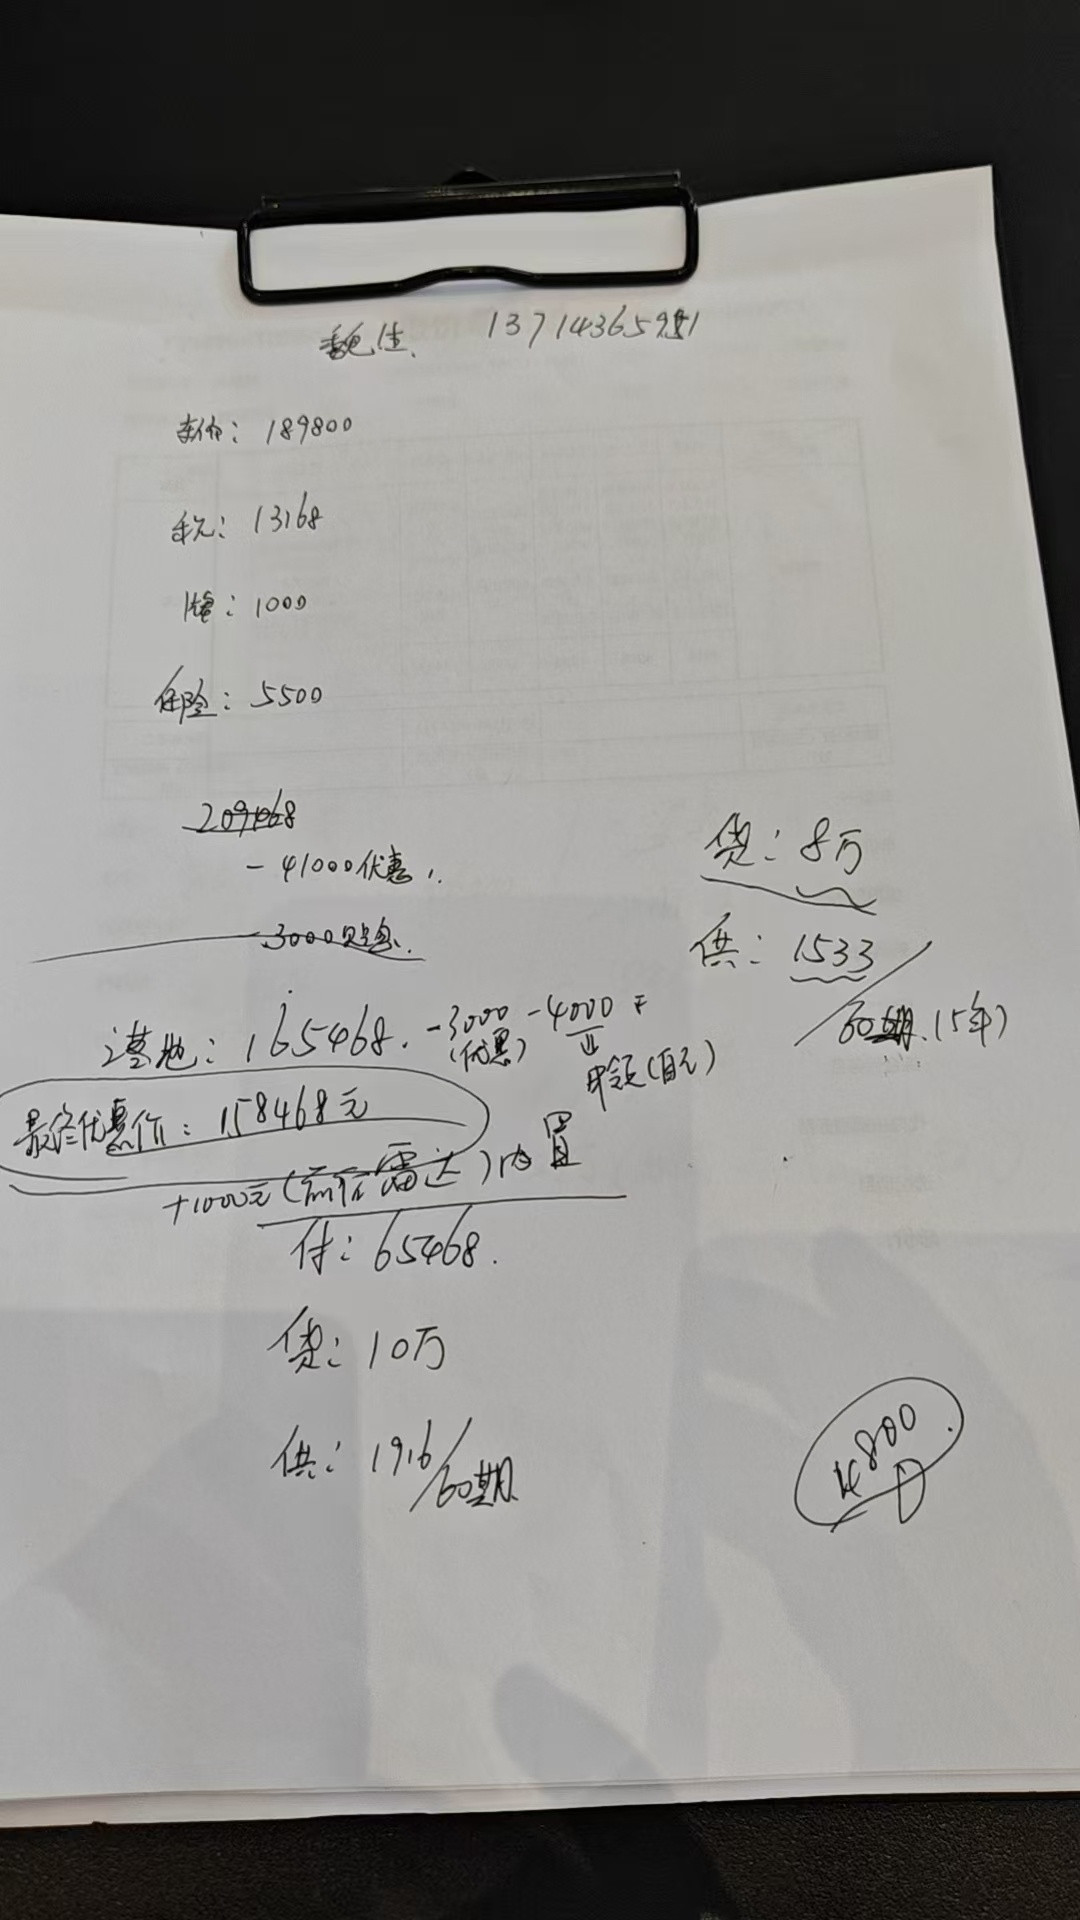 魏生. 13714365951
车价: 189800
税: 13168
牌: 1000
保险: 5500
209468
-41000优惠.
-3000贴息.
贷: 8万
供: 1533/60期.(5年)
落地: 165468. -3000(优惠) -4000 = 申领(自己)
最终优惠价: 158468元
+1000元(前后雷达)内置
付: 65468.
贷: 10万
供: 1916/60期
4800